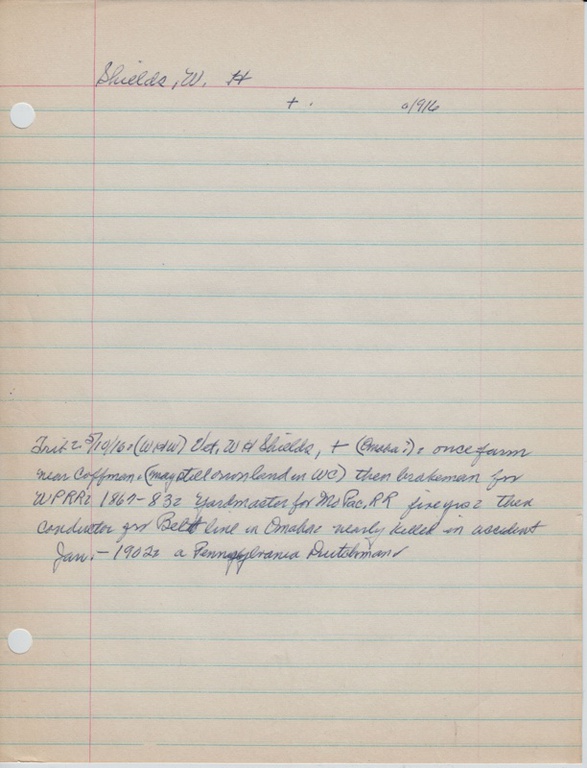 Shields, W. H
+ . 1916
Trib: 5/10/16: (WHW) Vet, W H Shields, + (Omaha?): once farm
near Coffman: (may still own land in WC) then brakeman for
UPRR: 1867-83: Yardmaster for Mo Pac, RR five yrs: then
conductor for Belt line in Omaha: nearly killed in accident
Jan: - 1902: a Pennsylvania Dutchman